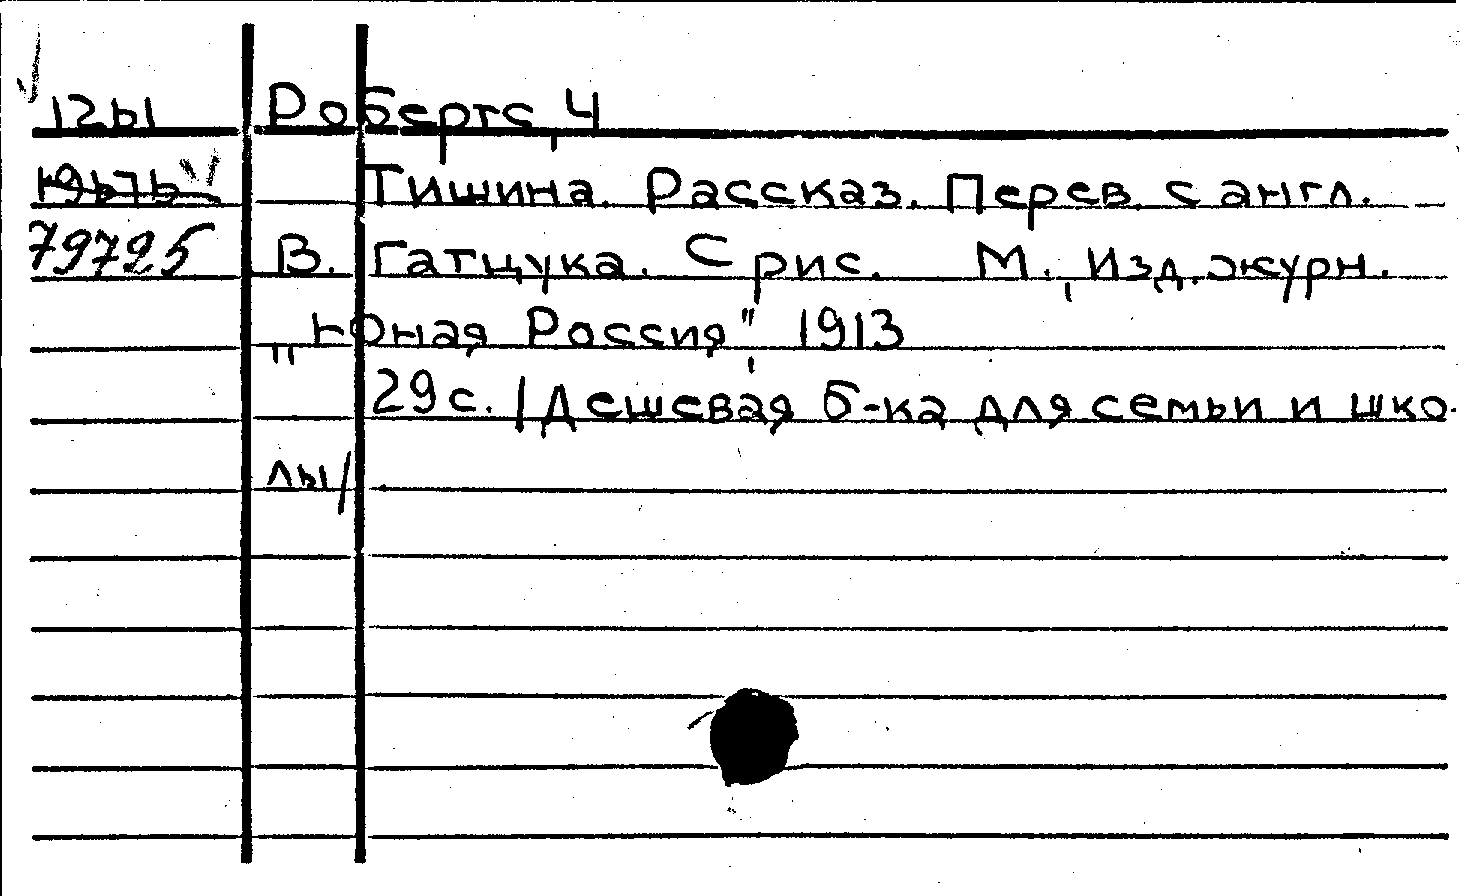 Робертс, Ч
Тишина. Рассказ. Перев. с англ.
79725 В. Гатцука. С рис. М., Изд. журн.
„Юная Россия", 1913
29 с. /Дешевая б-ка для семьи и шко-
лы/